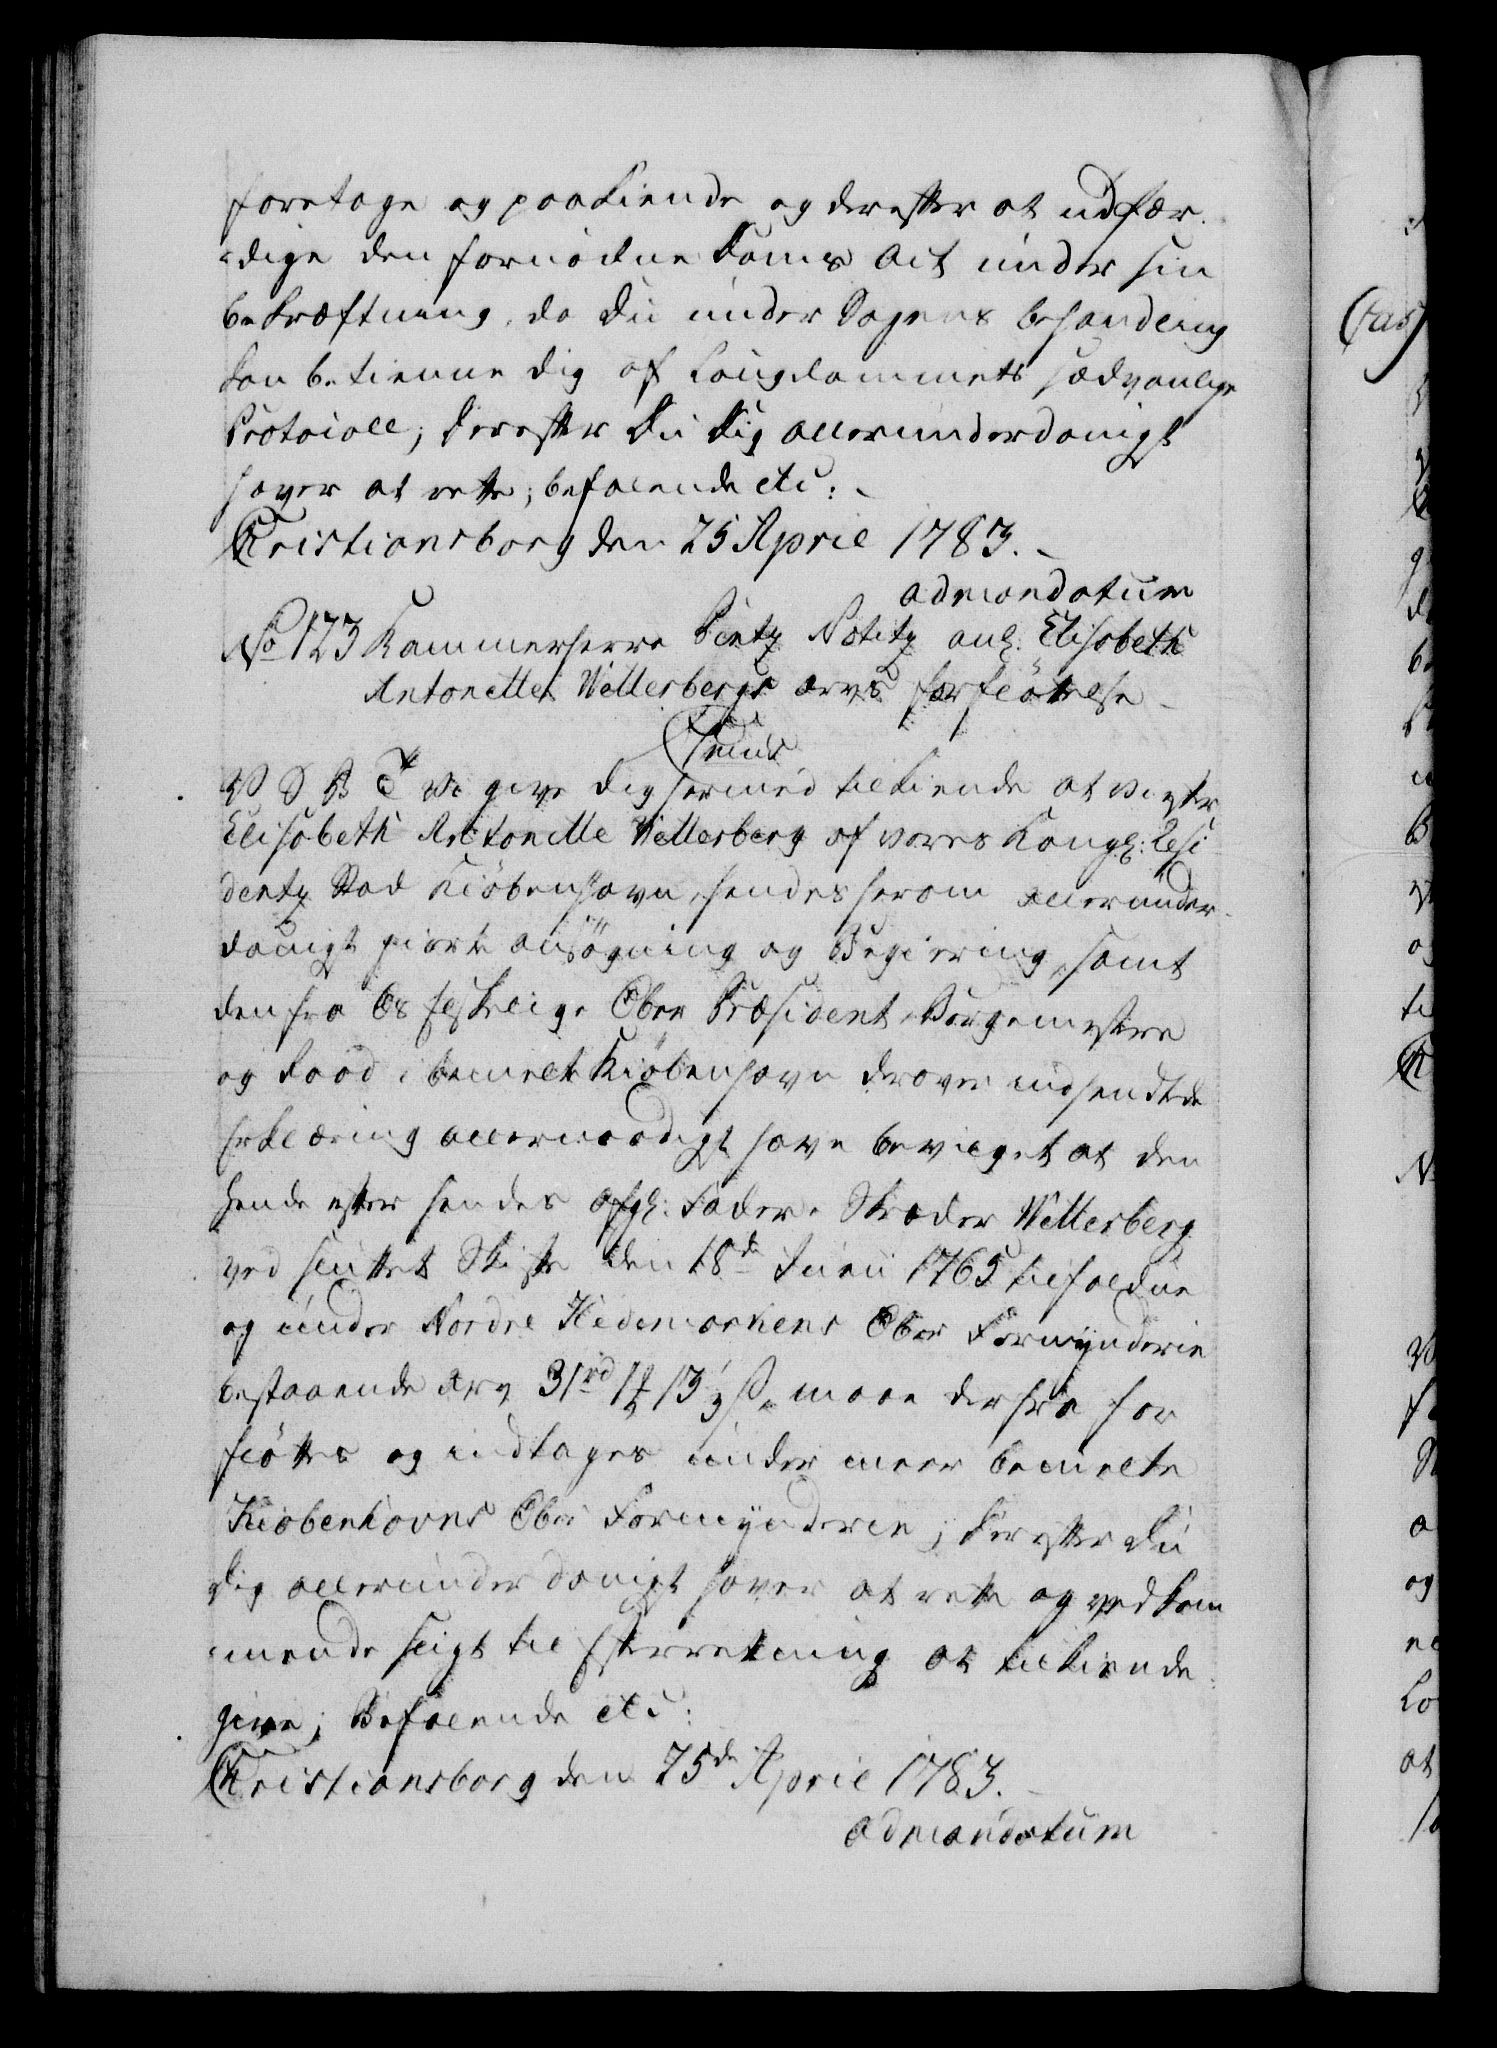 foretage og paakiende og derefter at udfær-
-dige den fornödne Doms Act under sin
bekræftning, da Du under Sagens behandling
kan betienne dig af Laugdommets sædvanlige
Protocoll; Derefter Du Dig allerunderdanigst
haver at rette; befalende etc:
Christiansborg den 25 April 1783.
admandatum
No 123 Kammerherre Pentz Notitz anl: Elisabeth
Antonette Wetterbergs arvs forflöttelse
V S B T Vi give dig hermed tilkiende at vi efter
Elisabeth Antonette Wetterberg af vores Kongl: Resi
dentz Stad Kiöbenhavn, hendes herom allerunder-
danigst giorte ansögning og Begiering, samt
den fra Os elskelige Ober Præsident, Borgemestere
og Raad i bemelte Kiöbenhavn derover indsendte
Erklæring allernaadigst have bevilget at den
hende efter hendes afgl: Fader, Skræder Wetterberg
ved sluttet Skifte den 18de Junii 1765 tilfaldne
og under Nordre Hedemarkens Ober Formynderie
bestaaende Arv 31 rd 1 13 ½ s, maae derfra for
flöttes og indtages under meer bemelte
Kiøbenhavns Ober Formynderie; Derefter Du
Dig allerunderdanigst haver at rette og vedkom
-mende sligt til Efterretning at tilkiende
give; Befalende etc:
Christiansborg den 25de April 1783.
admandatum